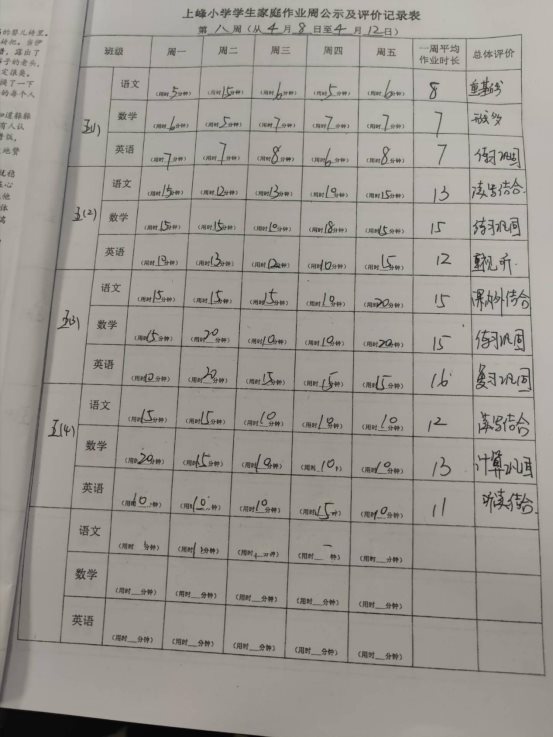 上峰小学学生家庭作业周公示及评价记录表
第 八 周（从 4 月 8 日至 4 月 12 日）
班级 周一 周二 周三 周四 周五 一周平均作业时长 总体评价
五(1) 语文 (用时5分钟) (用时15分钟) (用时6分钟) (用时5分钟) (用时6分钟) 8
数学 (用时6分钟) (用时5分钟) (用时7分钟) (用时7分钟) (用时7分钟) 7
英语 (用时7分钟) (用时7分钟) (用时8分钟) (用时6分钟) (用时8分钟) 7 练习巩固
五(2) 语文 (用时15分钟) (用时12分钟) (用时13分钟) (用时10分钟) (用时15分钟) 13 读写结合
数学 (用时15分钟) (用时15分钟) (用时10分钟) (用时18分钟) (用时15分钟) 15 练习巩固
英语 (用时10分钟) (用时13分钟) (用时12分钟) (用时10分钟) (用时15分钟) 12 听
五(3) 语文 (用时15分钟) (用时15分钟) (用时15分钟) (用时10分钟) (用时20分钟) 15 课内外结合
数学 (用时15分钟) (用时20分钟) (用时10分钟) (用时10分钟) (用时20分钟) 15 练习巩固
英语 (用时12分钟) (用时20分钟) (用时15分钟) (用时15分钟) (用时15分钟) 16 复习巩固
五(4) 语文 (用时15分钟) (用时15分钟) (用时10分钟) (用时10分钟) (用时10分钟) 12 读写结合
数学 (用时20分钟) (用时15分钟) (用时10分钟) (用时10 (用时10分钟) 13 计算巩固
英语 (用时10分钟) (用时10分钟) (用时10分钟) (用时15钟) (用时10分钟) 11 听读结合
语文 (用时 分钟) (用时 分钟) (用时 分钟) (用时 钟) (用时 分钟)
数学 (用时__分钟) (用时__分钟) (用时__分钟) (用时__分钟) (用时__分钟)
英语 (用时__分钟) (用时__分钟) (用时__分钟) (用时__分钟) (用时__分钟)